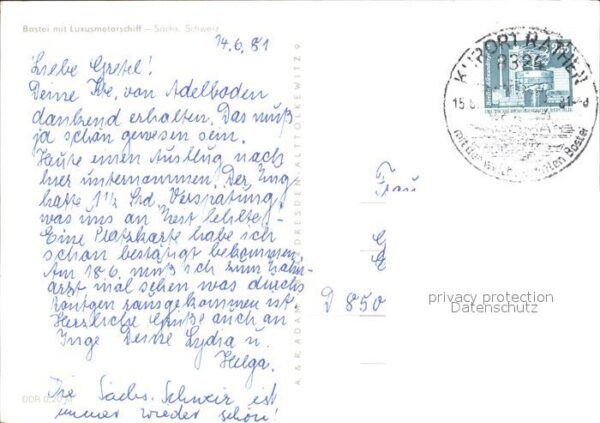 Bastei mit Luxusmotorschiff – Sächs. Schweiz
14.6.81
Liebe Gretel!
Deine Kte. von Adelboden
dankend erhalten. Das muß
ja schön gewesen sein.
Heute einen Ausflug nach
hier unternommen. Der Zug
hatte 1½ Std. Verspätung,
was uns an Zeit fehlte.
Eine Platzkarte habe ich
schon bestätigt bekommen.
Am 18.6. muß ich zum Zahn-
arzt mal sehen, was durchs
Röntgen rausgekommen ist.
Herzliche Grüße auch an
Inge Deine Lydia u.
Helga.
Die Sächs. Schweiz ist
immer wieder schön!
DDR 0,20 M
A. & R. ADAM DRESDEN ALTTOLKEWITZ 9
KURORT RATHEN
8324
15.6. 81-8
mit der
Bastei
Frau
G
E
D 850
privacy protection
Datenschutz